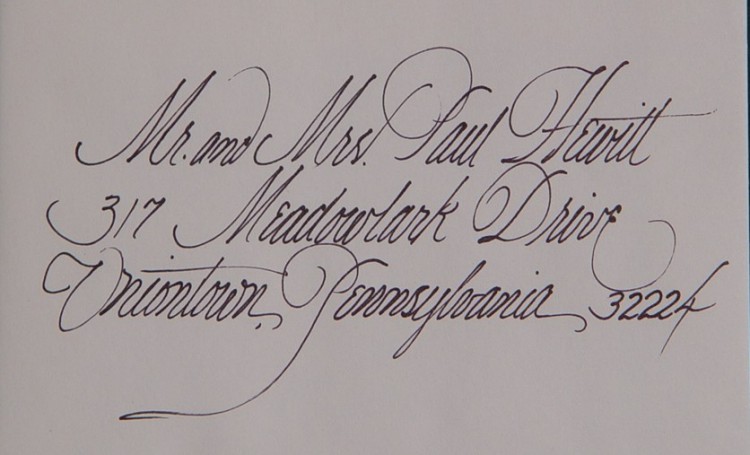 Mr. and Mrs. Paul Hewitt
317 Meadowlark Drive
Uniontown, Pennsylvania 32224